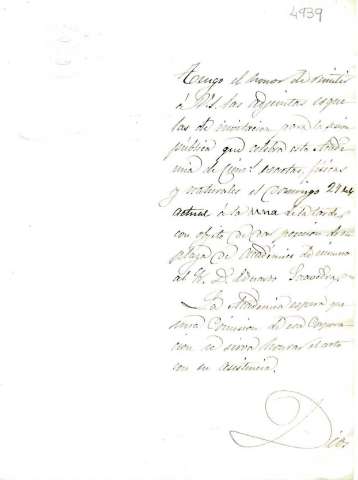 4939
Tengo el honor de remitir
á V.S. las adjuntas esque
las de invitacion para la sesion
publica que celebra esta Acade
mia de Cienc.s exactas, físicas
y naturales el Domingo 27 del
actual á la una de la tarde,
con objeto de dar posesion de
plaza de Académico de número
al Sr. D. Eduardo Saavedra.
La Academia espera que
una Comision de esa Corpora
cion se sirva honrar el acto
con su asistencia.
Dios